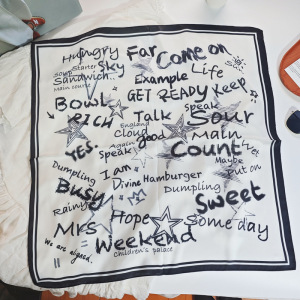 Hungry Far Come on
Soup Starter Sky
Sandwich.. Example Life
Main course
Bowl GET READY Keep
Rich Talk Speak Sour
England
Cloud good Main
YES. Again
Speak Count
I am Maybe
Dumpling Put on
Busy Divine Hamburger
Dumpling
Rainy Sweet
Mrs Hope Some day
We are agreed. Weekend
Children's palace